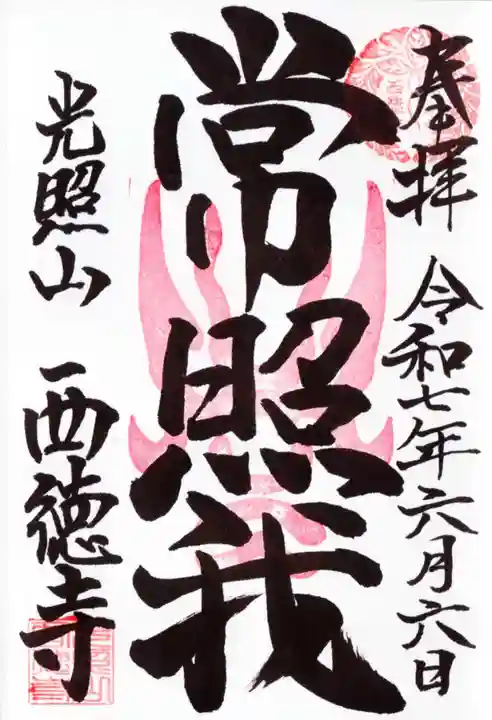 奉拝 令和七年六月六日
常照我
光照山 西徳寺